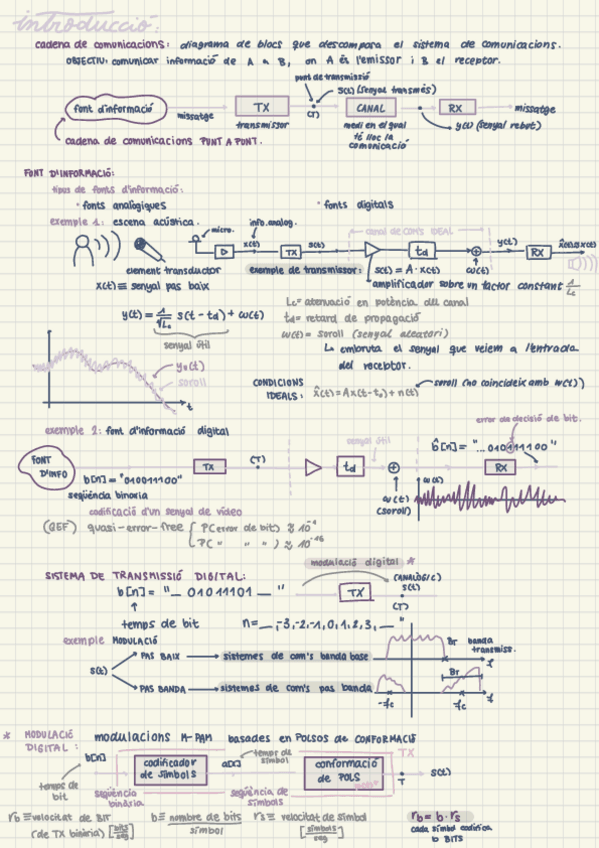 introducció.
cadena de comunicacions: diagrama de blocs que descompara el sistema de comunicacions.
OBJECTIU: comunicar informació de A a B, on A és l'emissor i B el receptor.
punt de transmissió
s(t) (senyal transmès)
font d'informació
missatge
TX
(T)
CANAL
RX
missatge
transmissor
medi en el qual
té lloc la
comunicació
y(t) (senyal rebut)
cadena de comunicacions PUNT A PUNT.
FONT D'INFORMACIÓ:
tipus de fonts d'informació:
· fonts analògiques
· fonts digitals
exemple 1: escena acústica.
micro.
info.analog.
canal de COM'S IDEAL
x(t)
TX
s(t)
td
y(t)
RX
w(t)
element transductor
exemple de transmissor:
s(t) = A·x(t)
x(t) ≡ senyal pas baix
amplificador sobre un factor constant 1/Lc
y(t) = 1/√Lc s(t-td) + w(t)
senyal útil
Lc = atenuació en potència del canal
td = retard de propagació
w(t) = soroll (senyal aleatori)
↳ embruta el senyal que veiem a l'entrada
del receptor.
y0(t)
soroll
t
CONDICIONS
IDEALS:
x̂(t) = Ax(t-t0) + n(t)
soroll (no coincideix amb w(t))
exemple 2: font d'informació digital
error de decisió de bit.
FONT
D'INFO
b[n] = "01001100"
seqüència binaria
TX
(T)
senyal útil
td
b̂[n] = "...0101111100"
RX
w(t)
(soroll)
w(t)
codificació d'un senyal de vídeo
(QEF) quasi-error-free
SISTEMA DE TRANSMISSIÓ DIGITAL:
modulació digital *
b[n] = "_ 01011101 _ "
TX
(ANALÒGIC)
s(t)
(T)
temps de bit
n = _,-3,-2,-1,0,1,2,3,_ "
exemple MODULACIÓ
s(t)
PAS BAIX
sistemes de com's banda base
BT
banda
transmiss.
f
PAS BANDA
sistemes de com's pas banda
BT
-fc
fc
f
* MODULACIÓ
DIGITAL:
modulacions M-PAM basades en POLSOS de CONFORMACIÓ
b[n]
codificador
de símbols
a[n]
temps de
símbol
conformació
de POLS
TX
T
s(t)
temps de
bit
seqüència
binària
seqüència de
símbols
rb ≡ velocitat de BIT
(de TX binària) [bits/seg]
b ≡ nombre de bits / símbol
rs ≡ velocitat de símbol
[símbols/seg]
rb = b · rs
cada símbol codifica
b BITS